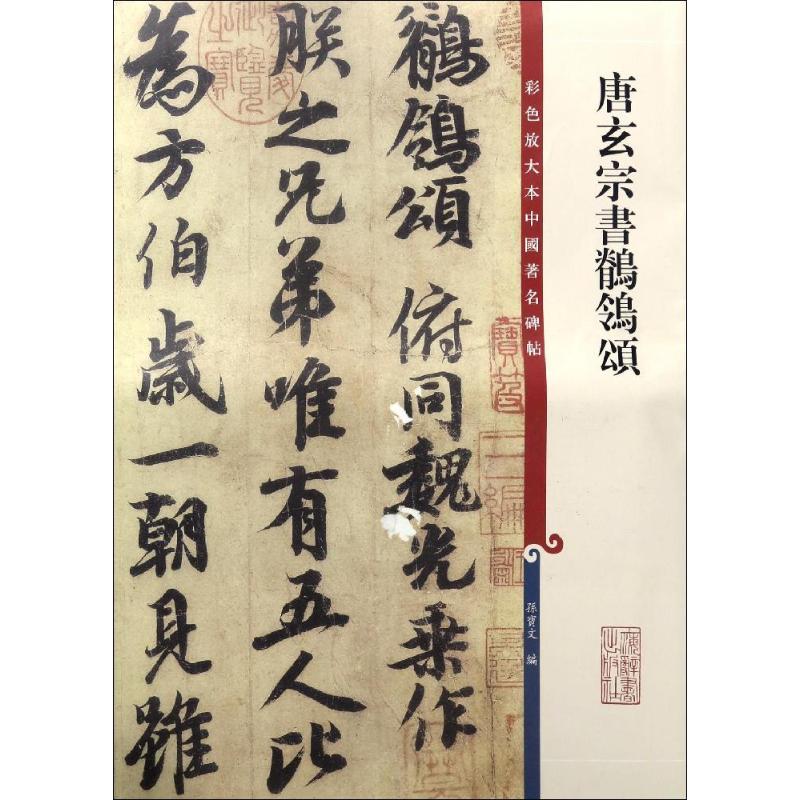 唐玄宗書鶺鴒頌
彩色放大本中國著名碑帖
孫寶文 編
上海辭書出版社
鶺鴒頌 俯同魏光乘作
朕之兄弟唯有五人比
為方伯歲一朝見雖